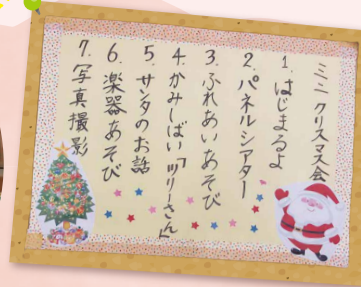 ミニクリスマス会
1. はじまるよ
2. パネルシアター
3. ふれあいあそび
4. かみしばい「ツリーさん」
5. サンタのお話
6. 楽器あそび
7. 写真撮影